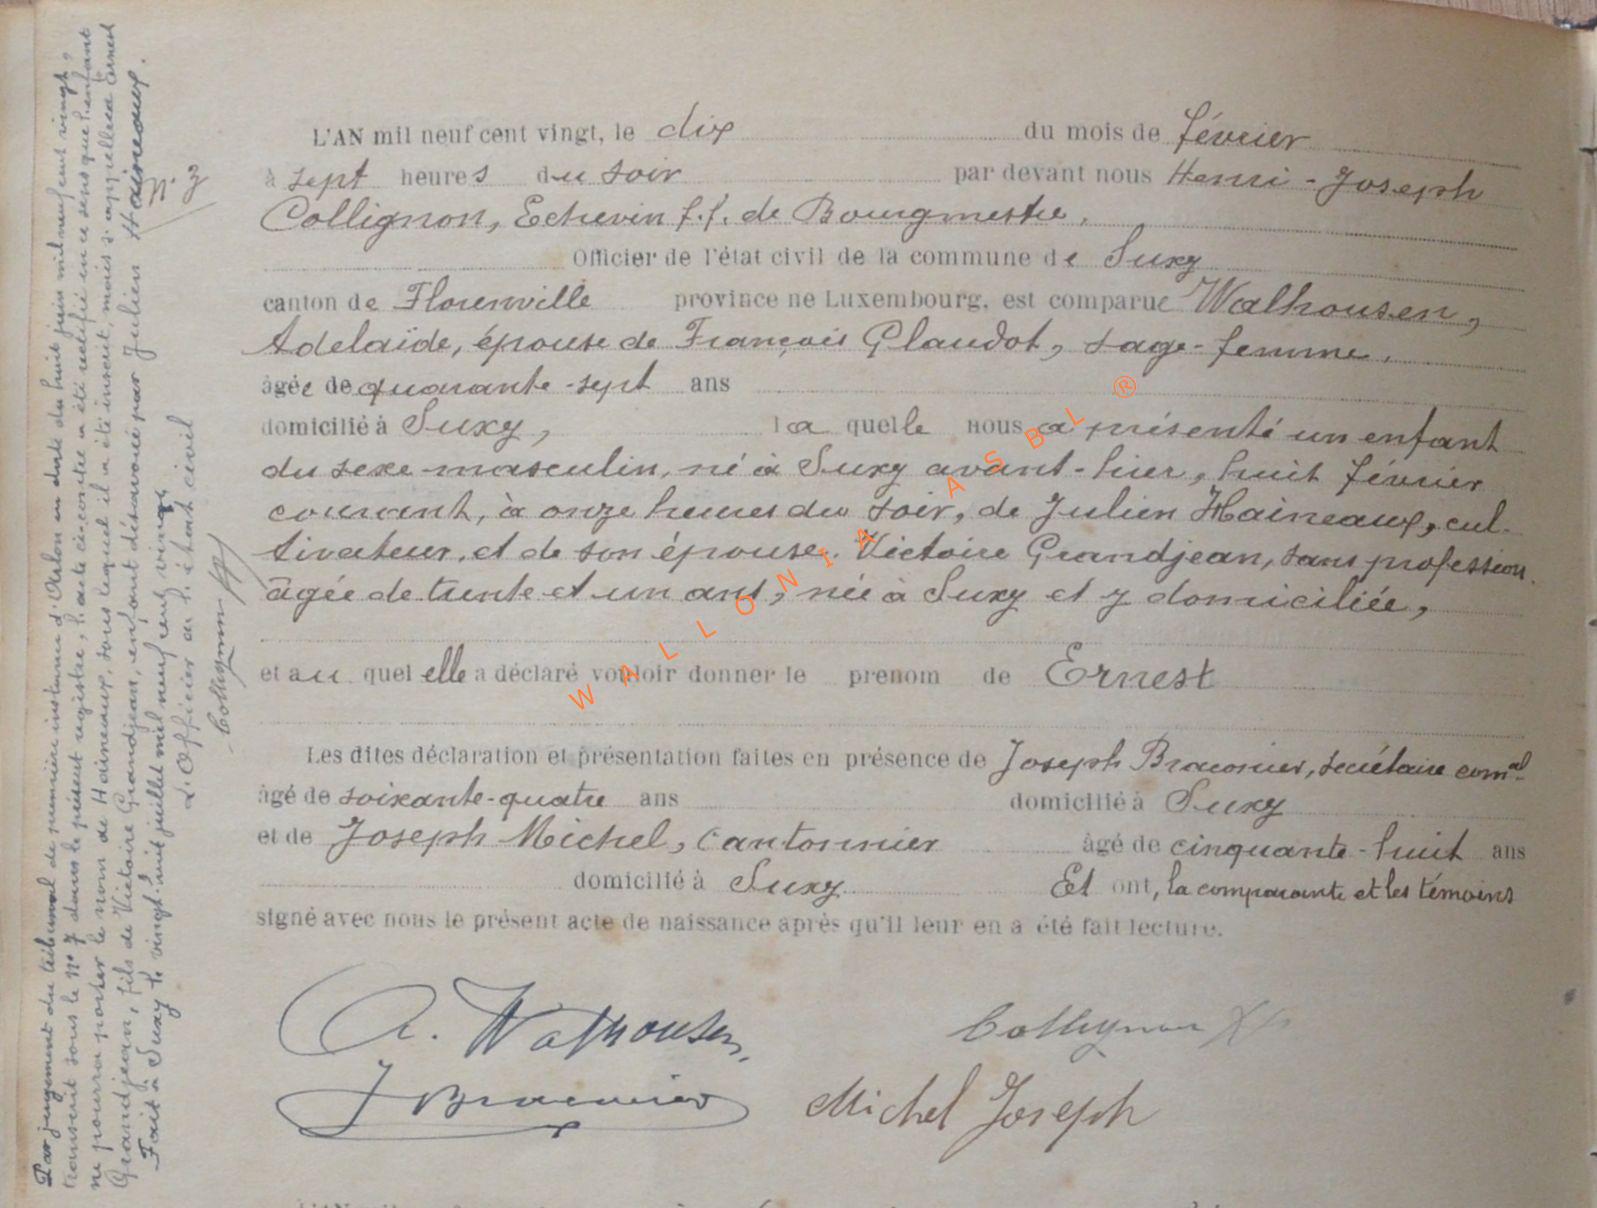 Par jugement du tribunal de première instance d'Arlon en date du huit juin mil neuf cent vingt,
transcrit sous le N° 7 dans le présent registre, l'acte ci-contre a été rectifié en ce sens que l'enfant
ne pourra porter le nom de Haineaux, sous lequel il a été inscrit, mais s'appellera Ernest
Grandjean, fils de Victoire Grandjean, enfant désavoué par Julien Haineaux.
Fait à Suxy le vingt-huit juillet mil neuf cent vingt
L'Officier de l'état civil
Collignon
N° 3
L'AN mil neuf cent vingt, le dix du mois de février
à sept heures du soir par devant nous Henri-Joseph
Collignon, Echevin f.f. de Bourgmestre,
Officier de l'état civil de la commune de Suxy
canton de Florenville province ne Luxembourg, est comparue Walhousen,
Adelaïde, épouse de François Glaudot, sage-femme,
âgée de quarante-sept ans
domicilié à Suxy, la quelle nous a présenté un enfant
du sexe masculin, né à Suxy avant-hier, huit février
courant, à onze heures du soir, de Julien Haineaux, cul-
tivateur, et de son épouse Victoire Grandjean, sans profession
âgée de trente et un ans, née à Suxy et y domiciliée,
et au quel elle a déclaré vouloir donner le prenom de Ernest
Les dites déclaration et présentation faites en présence de Joseph Braconnier, secrétaire comal
âgé de soixante-quatre ans domicilié à Suxy
et de Joseph Michel, cantonnier âgé de cinquante-huit ans
domicilié à Suxy Et ont, la comparante et les témoins
signé avec nous le présent acte de naissance après qu'il leur en a été fait lecture.
A. Walhousen Collignon
J Braconnier Michel Joseph
WALLONIA ASBL ®